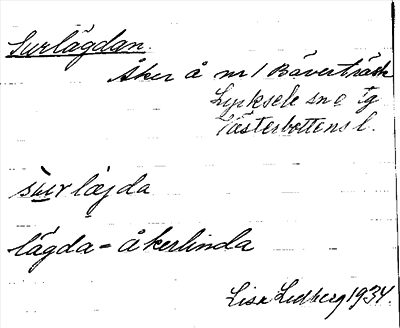 Surlägdan.
Åker å nr 1 Bäverträsk
Lycksele sn o tg
Västerbottens l.
su̲r lägda
lägda = åkerlinda
Lisa Lidberg 1934.